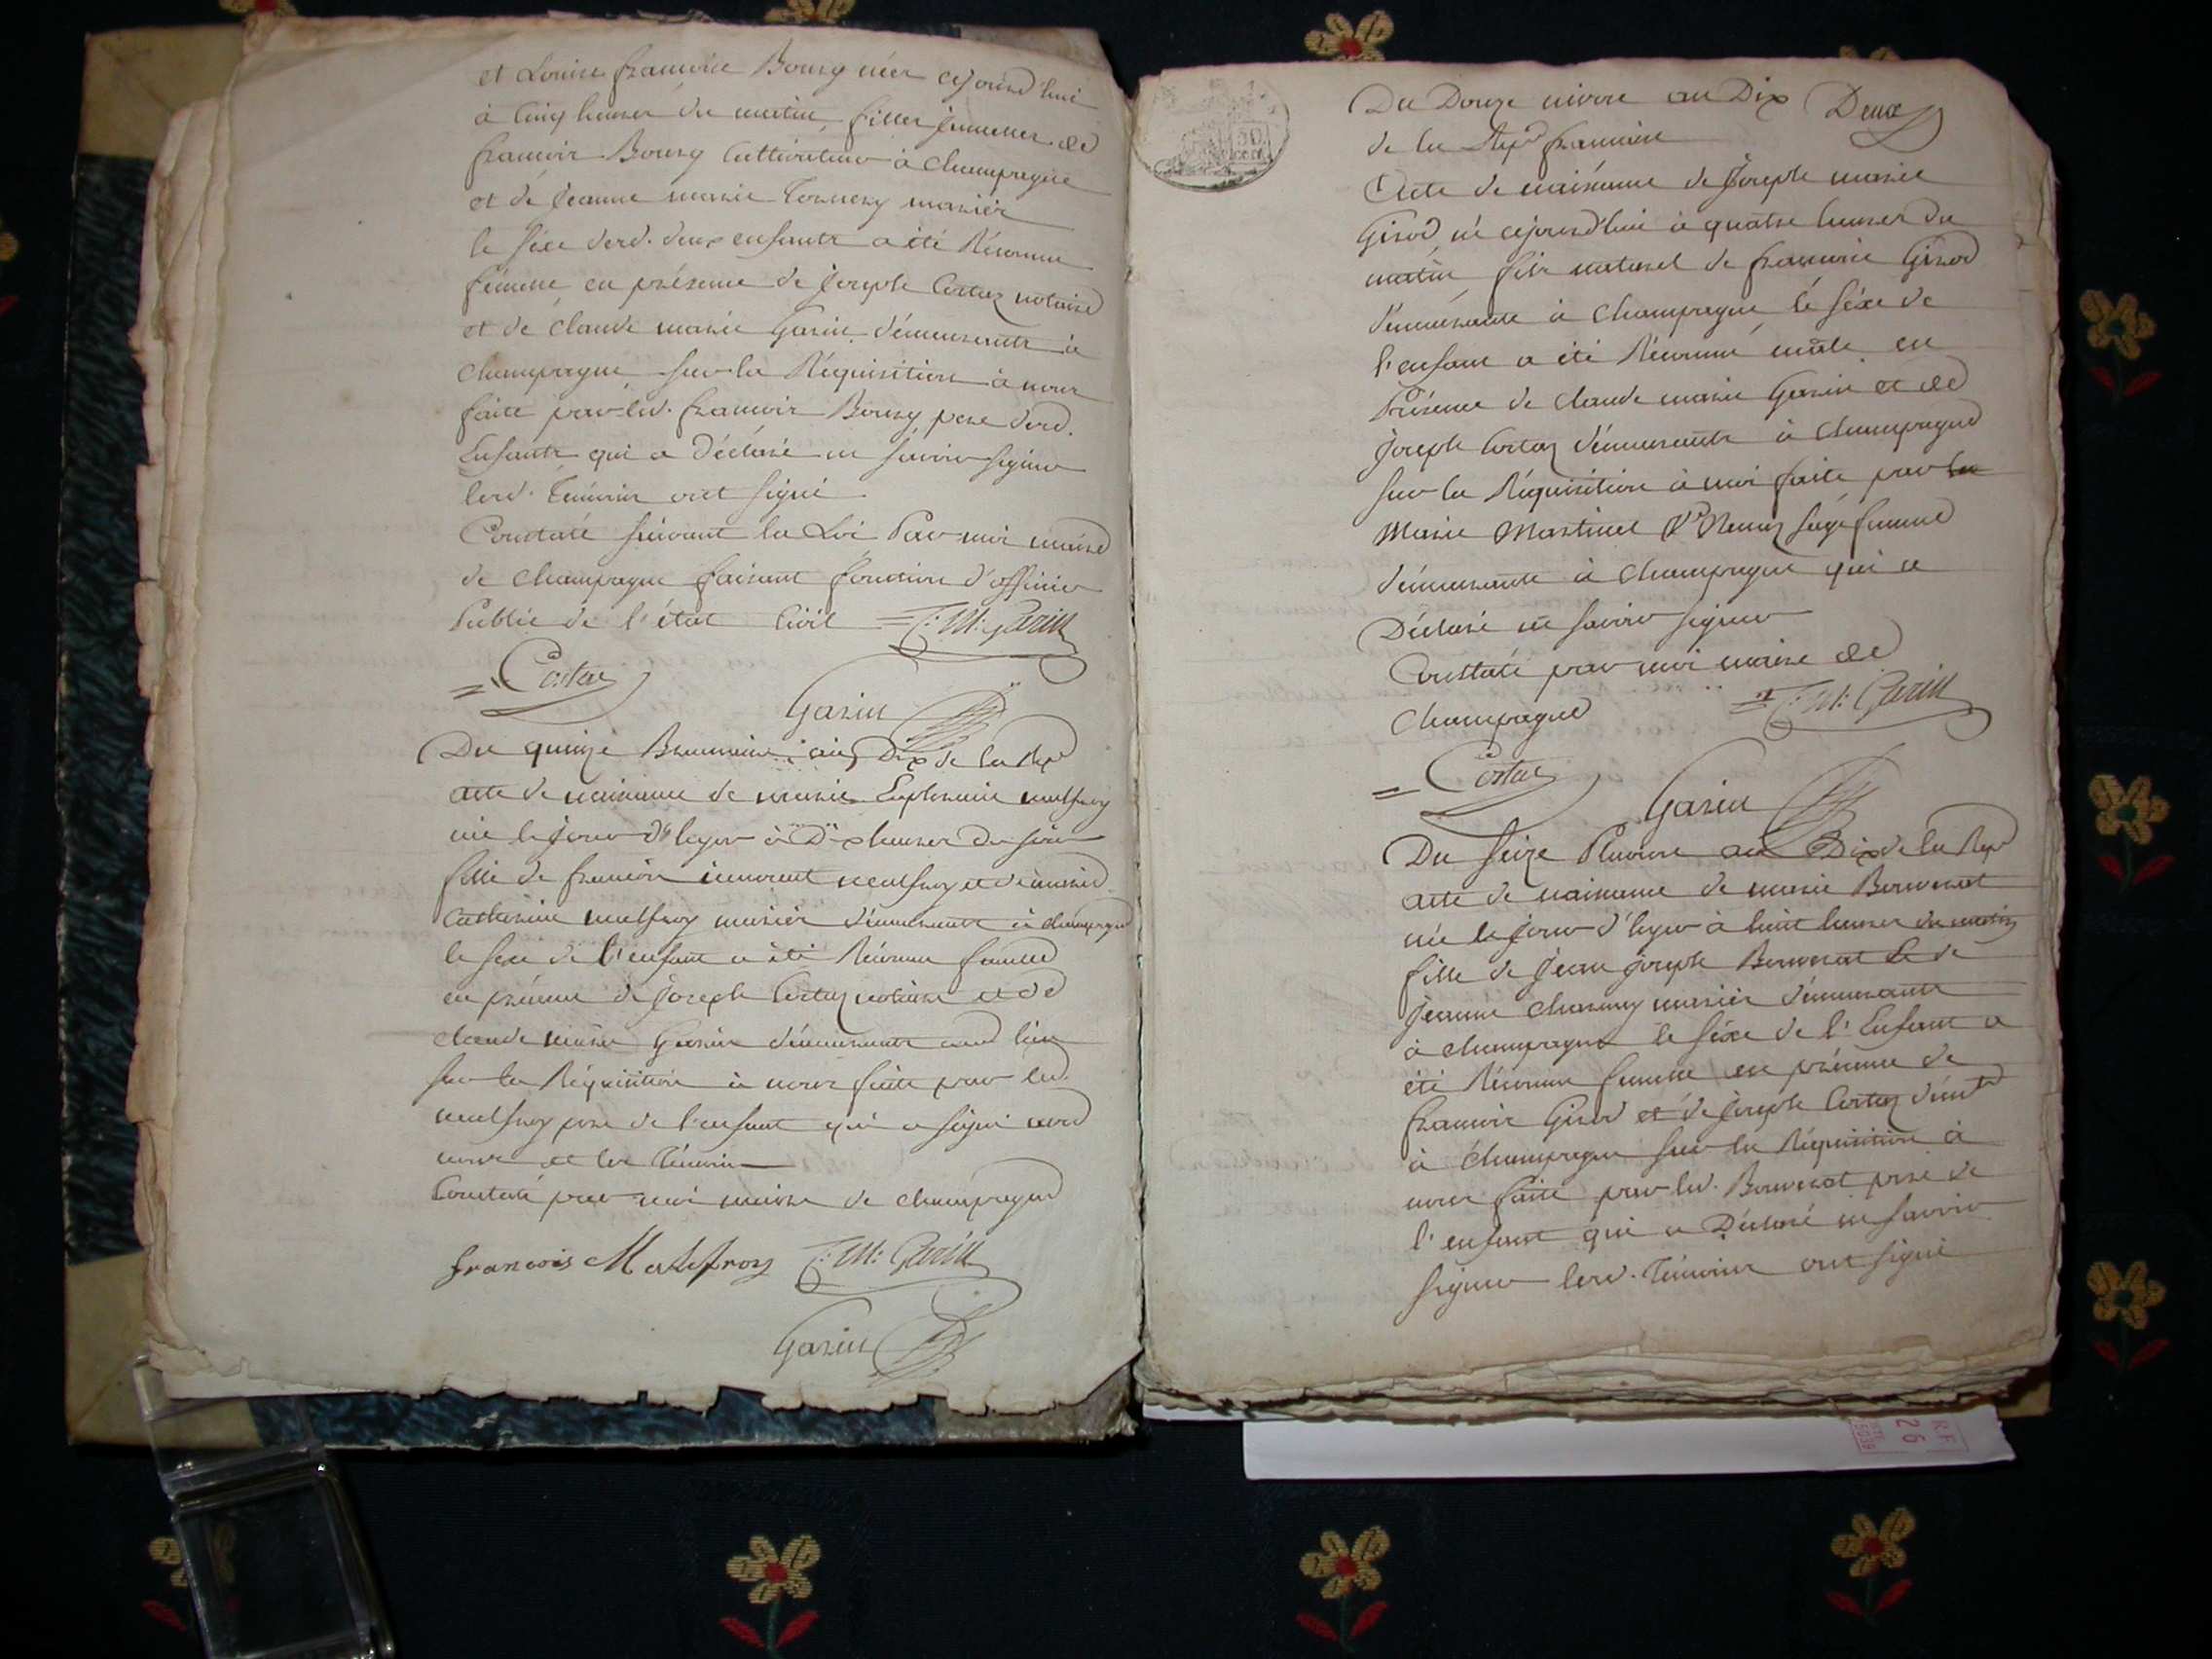 et Louise françoise Bourg nées cejourd'hui
à Cinq heures du matin, filles jumelles de
françois Bourg Cultivateur à champagne
et de jeanne marie mariés
le séxe desd. deux enfants a été Réconnu
fémelle en présence de joseph Costaz notaire
et de claude marie Garin démeurants à
champagne sur la Réquisition à nous
faite par led. françois Bourg pere desd.
Enfants qui a Déclaré ne savoir signer
lesd. Témoins ont signé
Constaté suivant la Loi Par moi maire
de champagne faisant fonction d'officier
Public de l'état Civil = J: M: Garin
= Costaz
Garin
Du quinze Brumaire an Dix de la Rep
acte de naissance de marie Euphrosine malfroy
née le jour d'hyer à Dix heures du soir
fille de françois innocent malfroy et de marie
Catherine malfroy mariés démeurants à champagne
le sexe de l'enfant a été Réconnu famelle
en présence de joseph Costaz notaire et de
claude marie Garin démeurants aud lieu
sur la Réquisition à nous faite par led.
malfroy pere de l'enfant qui a signé avec
nous et les Témoins
Constaté par moi maire de champagne
francois Malefroy J: M: Garin
Garin
Du Douze nivose an Dix Deux
de la Rep françoise
Acte de naissance de joseph marie
Girod né cejourd'hui à quatre heures du
matin, fils naturel de françoise Girod
démeurante à champagne le séxe de
l'enfant a été Réconnu mâle en
Présence de claude marie Garin et de
joseph Costaz démeurants à champagne
sur la Réquisition à moi faite par la
Marie Martinel Ve sage femme
démeurante à champagne qui a
Déclaré ne savoir signer
Constaté par moi maire de
champagne = J: M: Garin
= Costaz
Garin
Du seize Pluviose an Dix de la Rep
acte de naissance de marie Bouverat
née le jour d'hyer à huit heures du matin
fille de jean joseph Bouverat et de
jeanne mariés démeurants
à champagne le séxe de l'Enfant a
été Réconnu femelle en présence de
françois Girod et de joseph Costaz démts
à champagne sur la Réquisition à
nous faite par led. Bouverat pere de
l'enfant qui a Déclaré ne savoir
signer lesd. Témoins ont signé
R.F
26